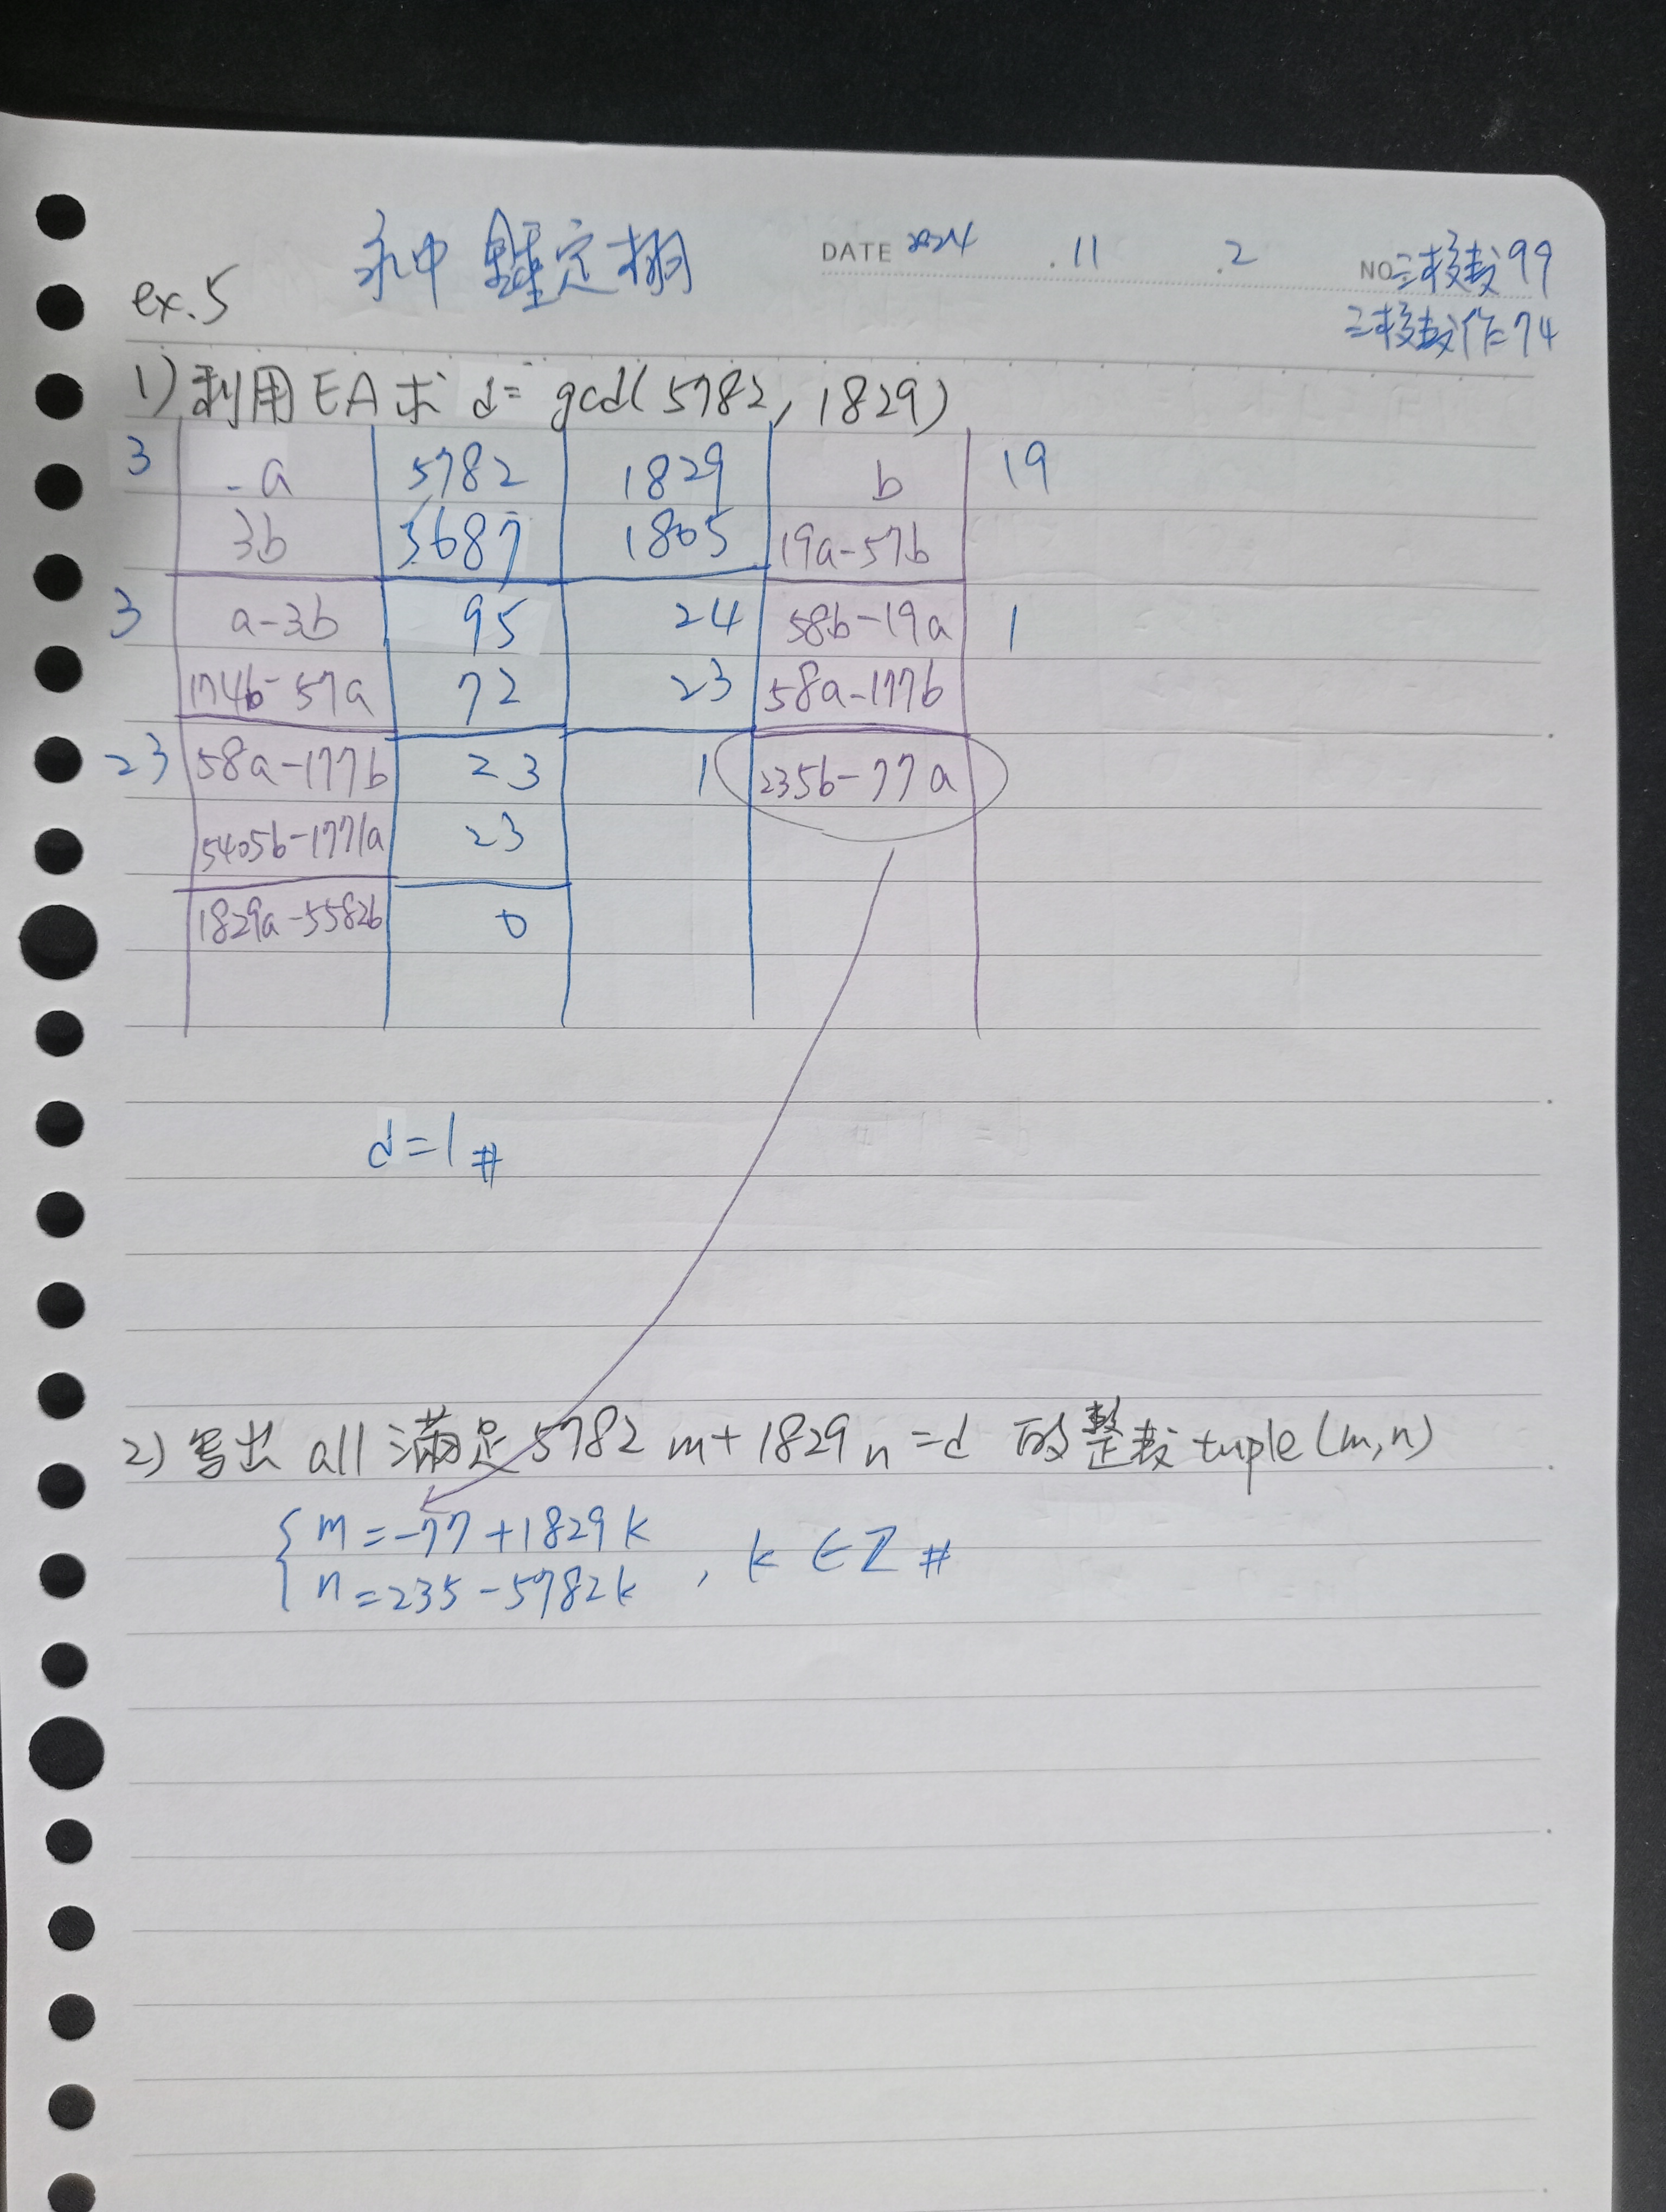 永中 鍾定栩 DATE 2024 .11 .2 NO.三核数99
三核数作74
ex.5
1) 利用 EA 求 d= gcd(5782, 1829)
3 a 5782 1829 b 19
3b 5687 1805 19a-57b
3 a-3b 95 24 58b-19a 1
174b-57a 72 23 58a-177b
23 58a-177b 23 1 235b-77a
5405b-1771a 23
1829a-5582b 0
d=1#
2) 写出 all 滿足 5782 m + 1829 n = d 的整数 tuple(m,n)
{ m = -77 + 1829 k
n = 235 - 5782k , k ∈ Z #